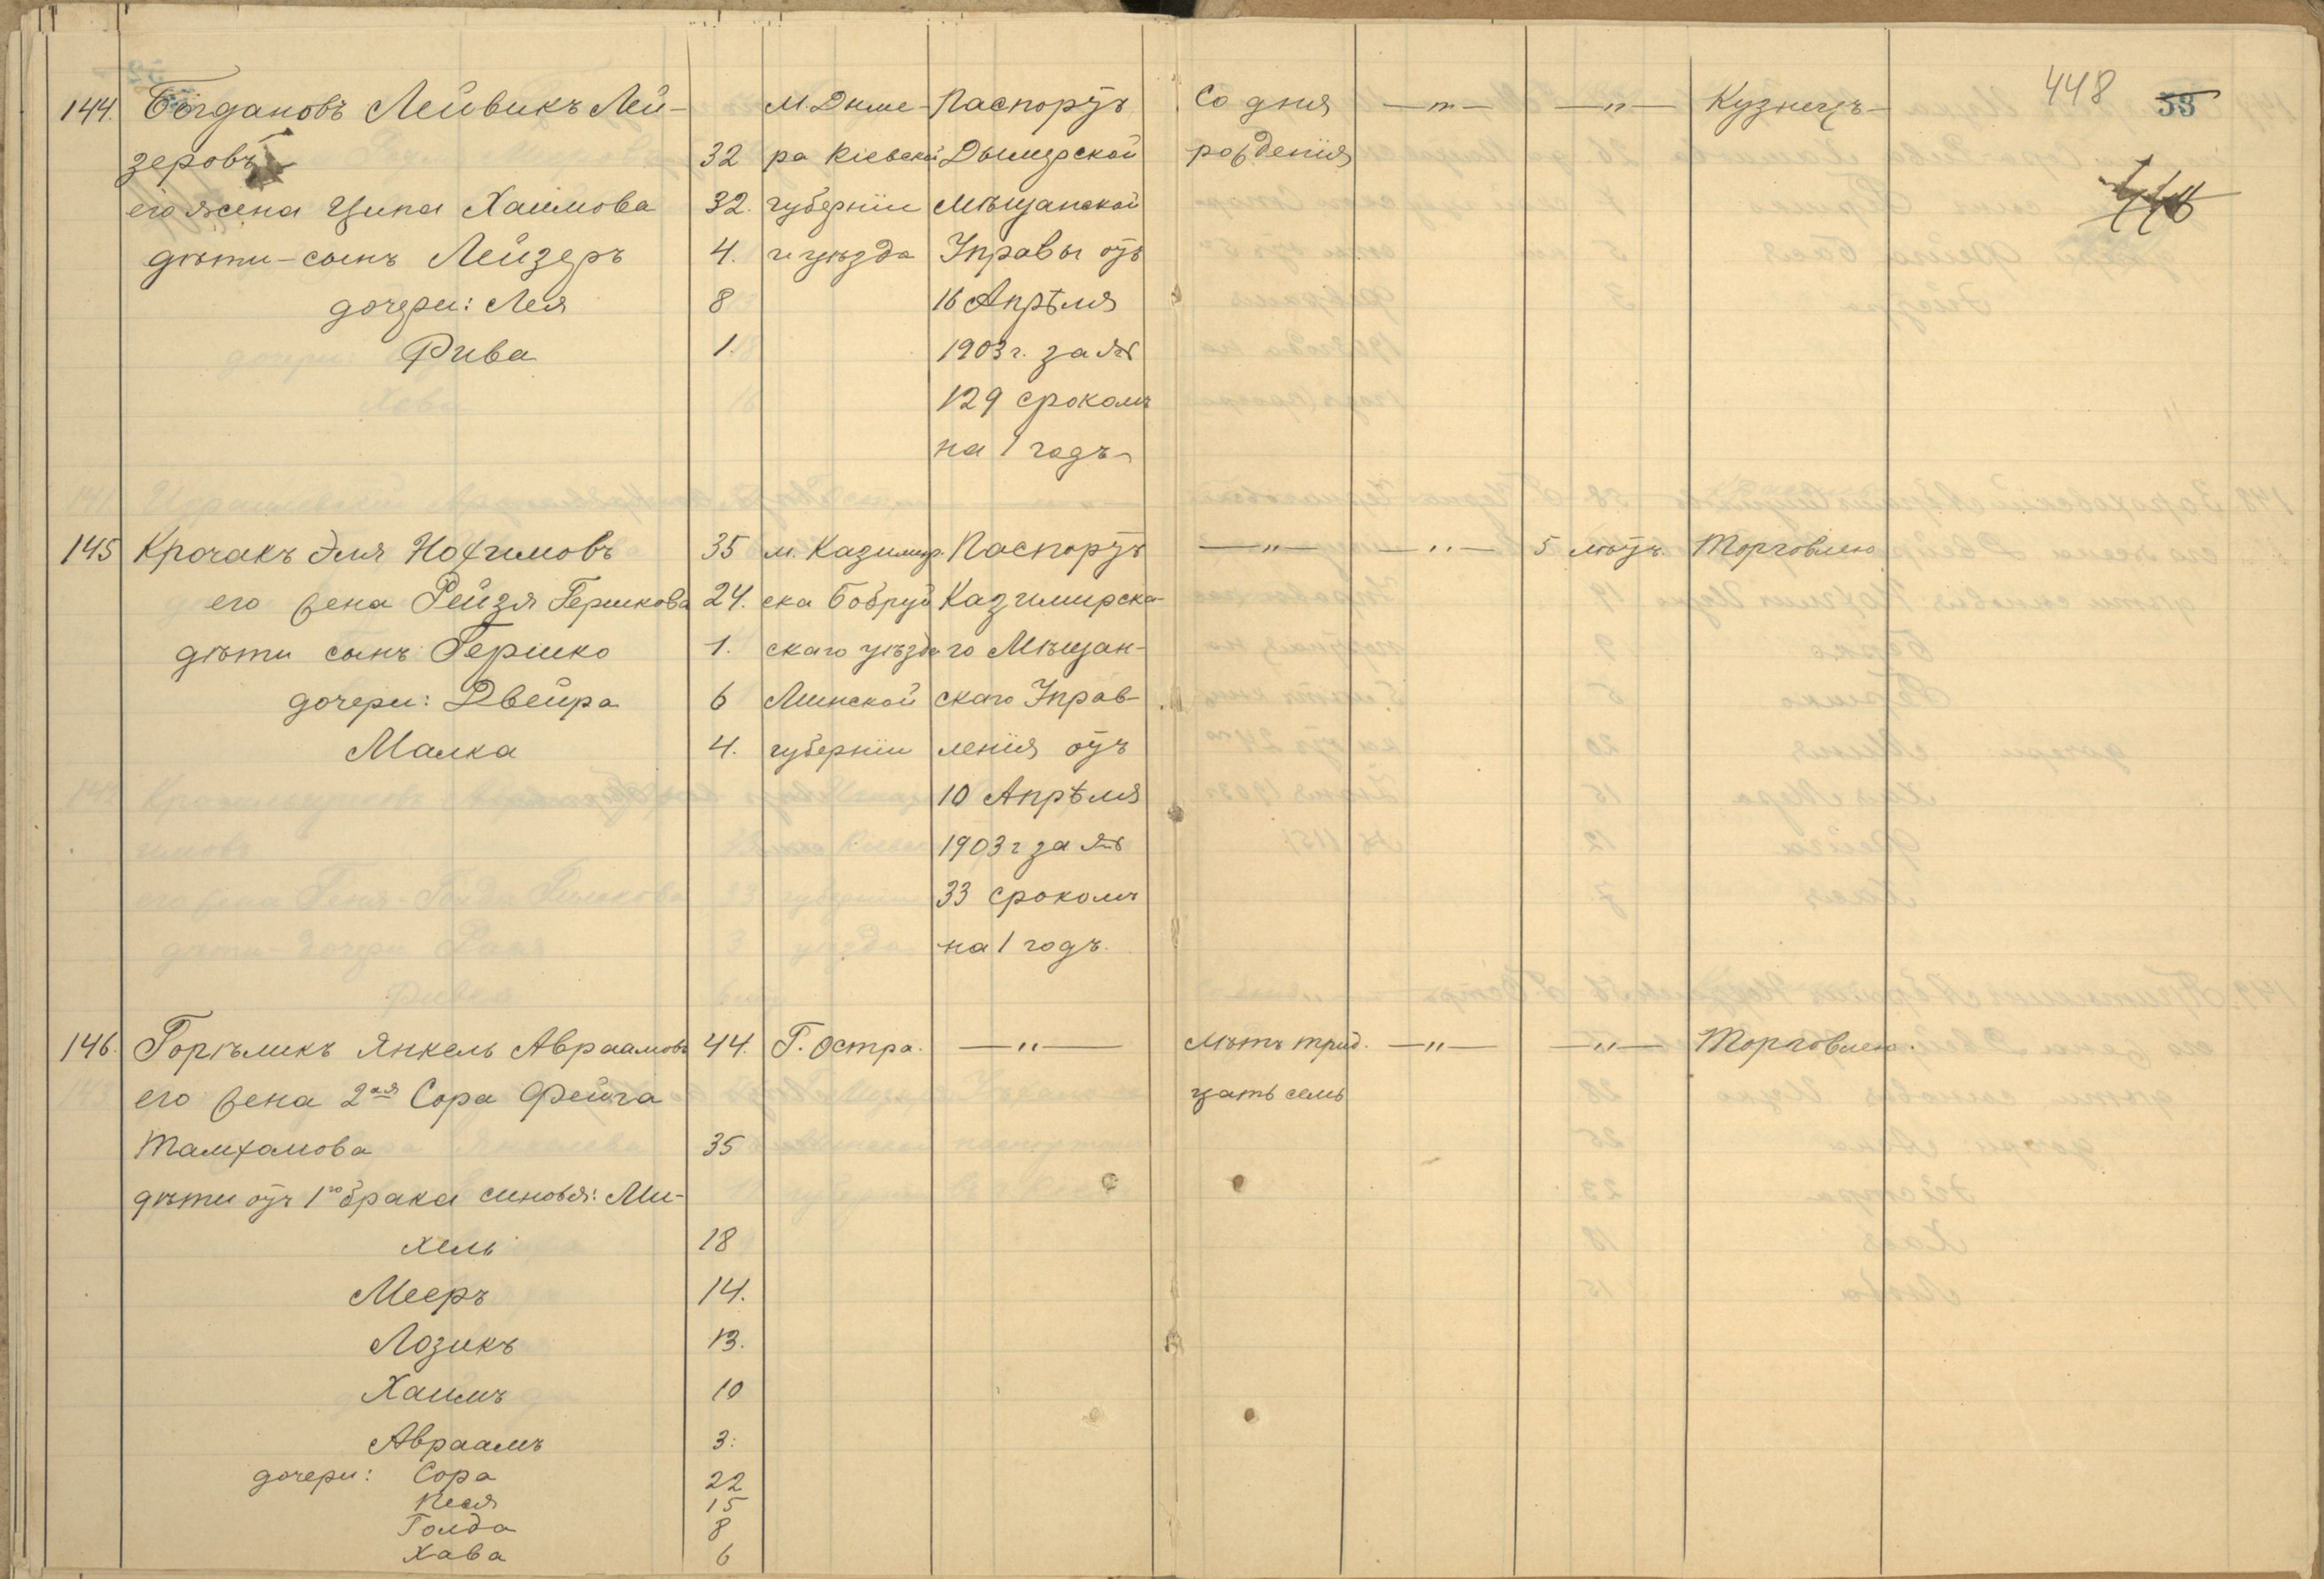 448 53
446
144. Богдановъ Лейвикъ Лей- м. Дыме- Паспортъ Со дня —"— —"— Кузнецъ
зеровъ 32 ра Кіевской Дымерской рожденія
его жена Ципа Хаимова 32. губерніи Мѣщанской
дѣти - сынъ Лейзеръ 4. и уѣзда Управы отъ
дочери: Лея 8 16 Апрѣля
Рива 1. 1903 г. за №
129 срокомъ
на 1 годъ
145 Крочакъ Эля Нохимовъ 35 м. Казимир- Паспортъ —"— —"— 5 лѣтъ Торговлею
его жена Рейзя Гершкова 24. ска Бобруй Казимирска-
дѣти сынъ Гершко 1. скаго уѣзда го Мѣщан-
дочери: Двейра 6 Минской скаго Управ-
Малка 4. губерніи ленія отъ
10 Апрѣля
1903 г за №
33 срокомъ
на 1 годъ.
146. Горѣликъ Янкель Авраамовъ 44. Г. Остра. —"— Лѣтъ трид. —"— —"— Торговлею.
его жена 2ая Сора Фейга цать семь
Талхамова 35
дѣти отъ 1го брака синовья: Ми-
хель 18
Мееръ 14.
Лозикъ 13.
Хаимъ 10
Авраамъ 3.
дочери: Сора 22
Песя 15
Голда 8
Хава 6